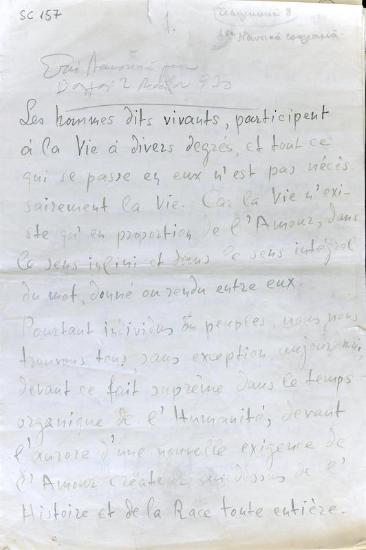 SC 157
1.
Les hommes dits vivants, participent
à la Vie à divers degrés, et tout ce
qui se passe en eux n'est pas néces
sairement la Vie. Car la Vie n'exi-
ste qu'en proportion de l'Amour, dans
le sens infini et dans le sens intégral
du mot, donné ou rendu entre eux.
Pourtant individus ou peuples, nous nous
trouvons tous, sans exception, aujourd'hui,
devant ce fait suprême dans le temps
organique de l'Humanité, devant
l'aurore d'une nouvelle exigence de
l'Amour créateur au dessus de l'
Histoire et de la Race toute entière.